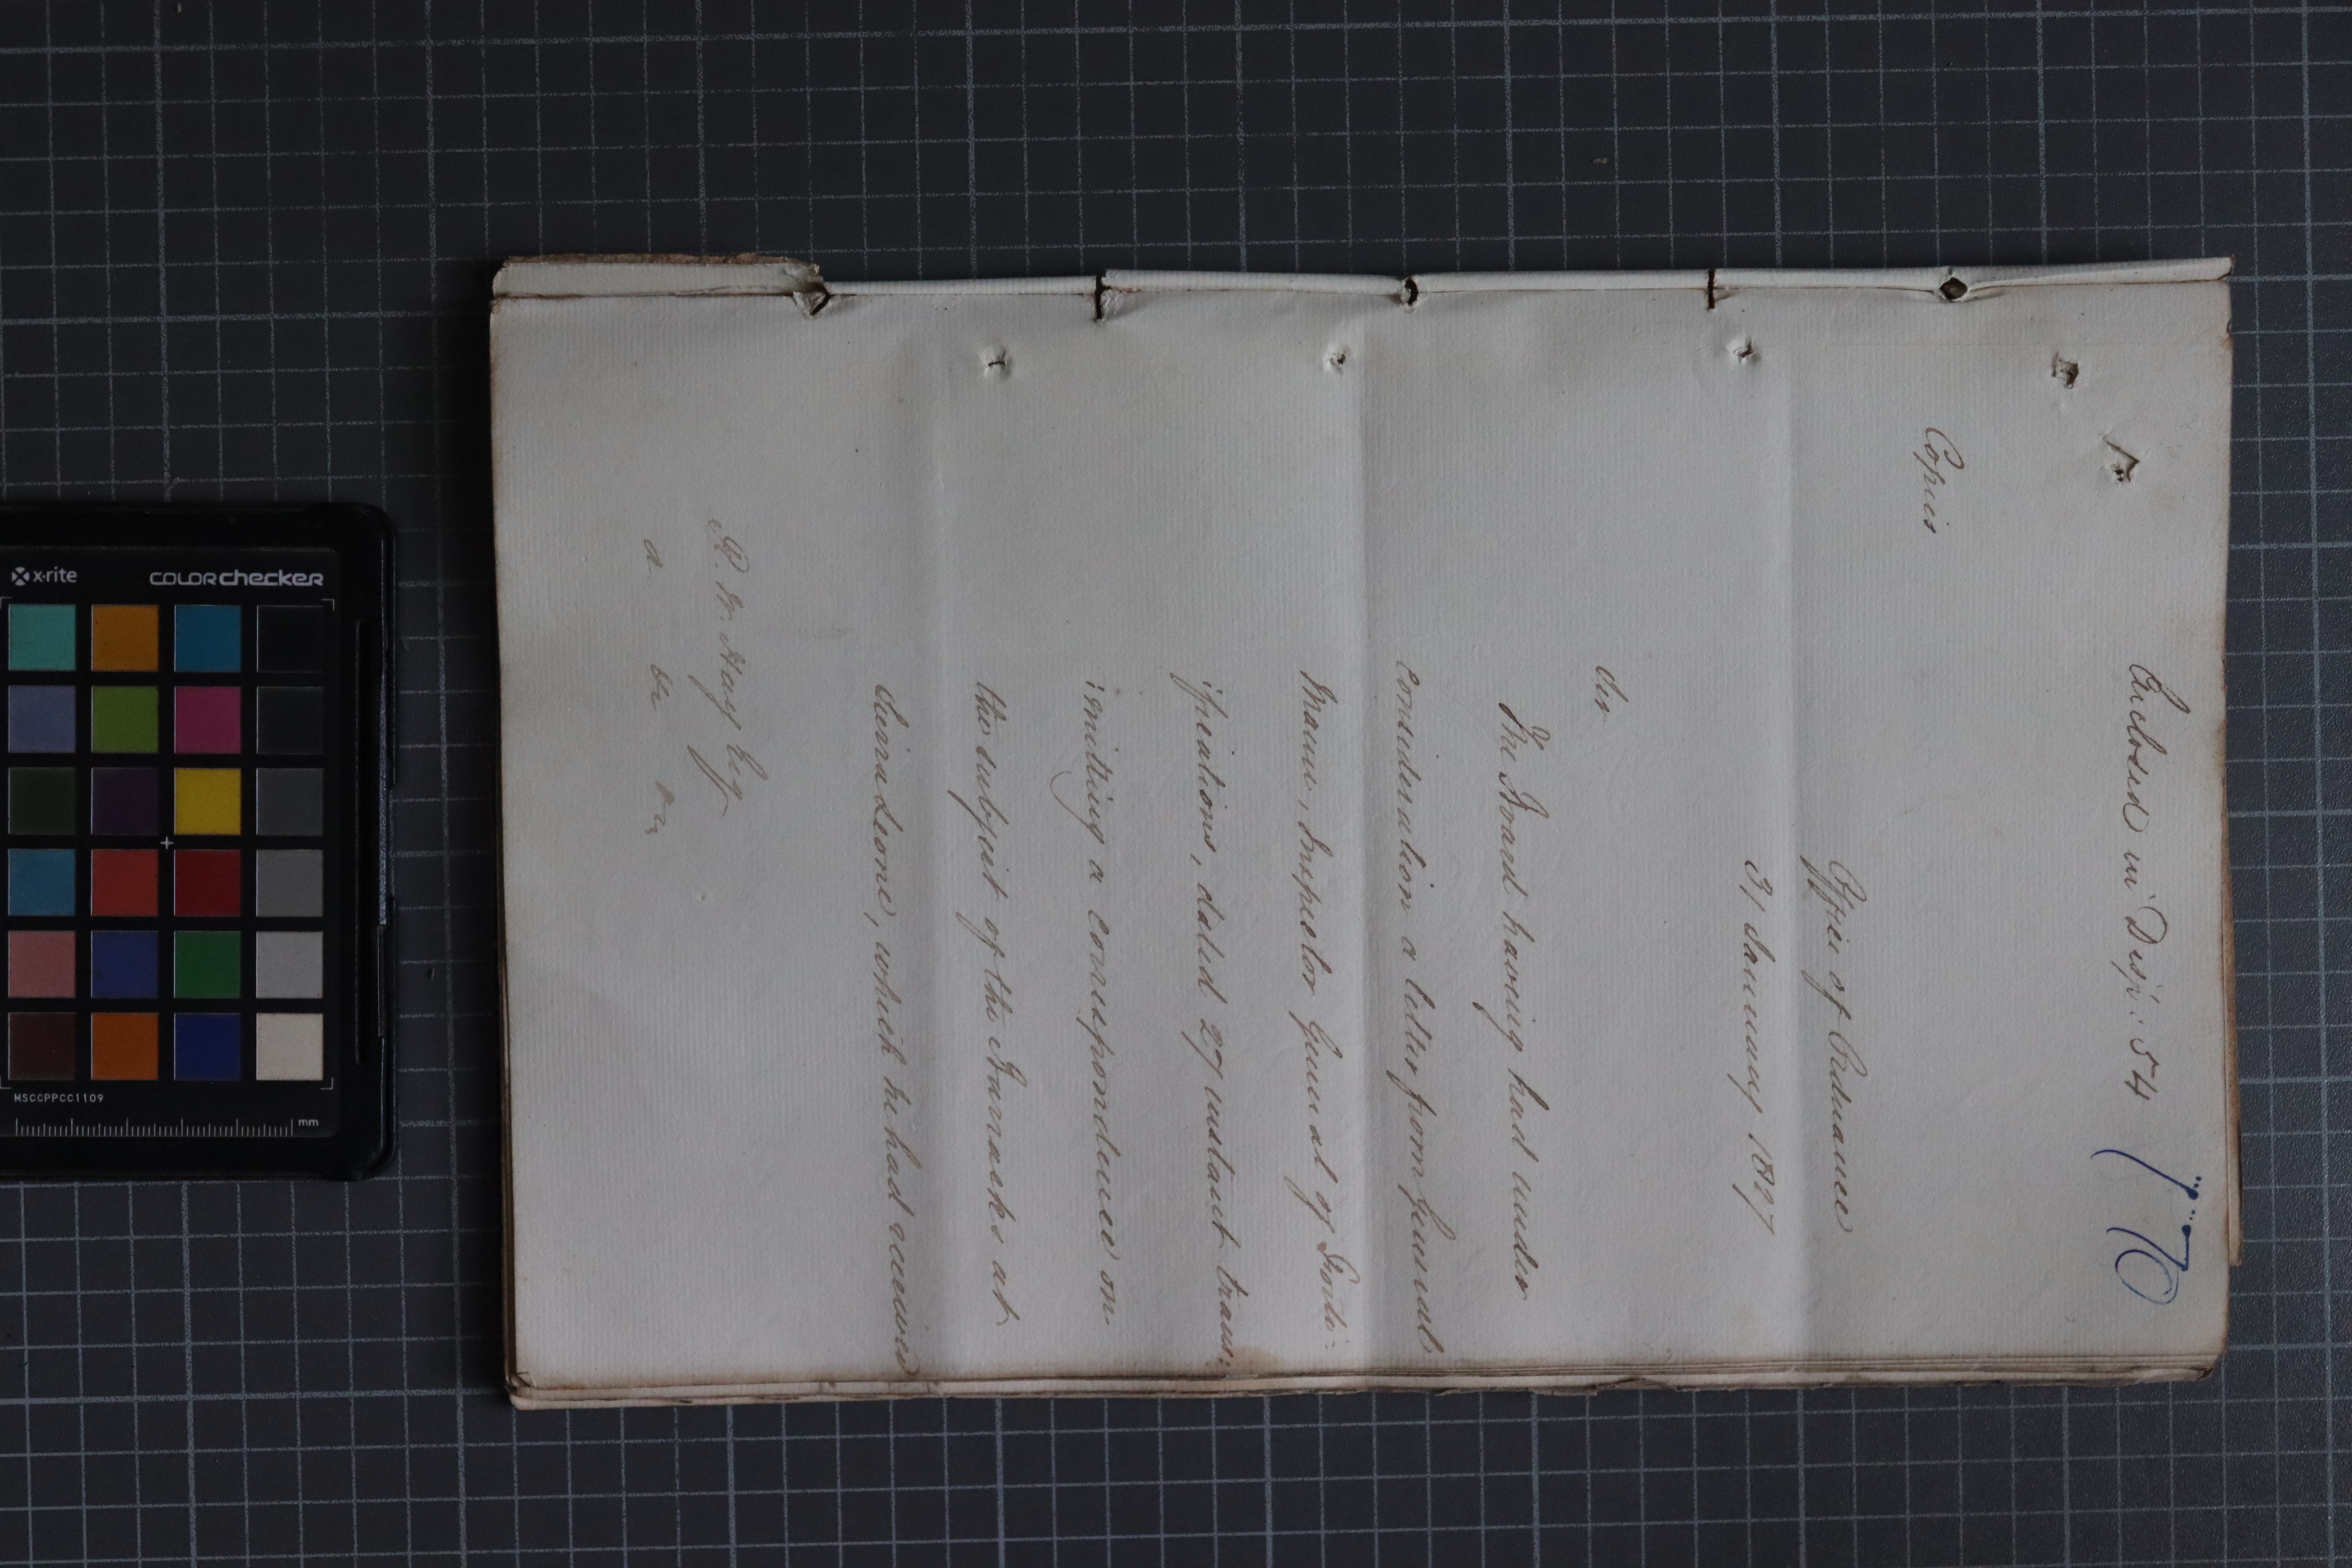 Enclosed in Desp: 54
Copies
Office of Ordnance
31 January 1827
Sir
The Board having had under
consideration a letter from General
Mann, Inspector General of Forti:
:fications, dated 27 instant trans:
:mitting a correspondence on
the subject of the Barracks at
Sierra Leone, which he had received
R. W. Hay Esq
&c &c &c
x·rite
COLORchecker
MSCCPPCC1109
mm